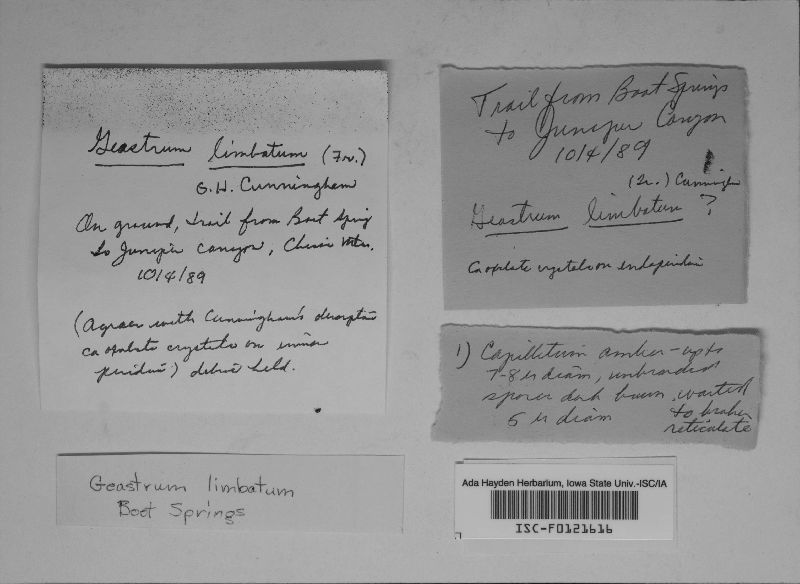 Geastrum limbatum (Fr.)
G. H. Cunningham
On ground, trail from Boot Spring
to Juniper Canyon, Chisos Mtns.
10/4/89
(Agrees with Cunningham's description
ca oxalate crystals on inner
peridium) debris held.
Trail from Boot Springs
to Juniper Canyon
10/4/89
(Fr.) Cunningham
Geastrum limbatum ?
Ca oxalate crystals on endoperidium
1) Capillitium amber - up to
7-8 u diam, unbranched
spores dark brown, warted
to broken
5 u diam
reticulate
Geastrum limbatum
Boot Springs
Ada Hayden Herbarium, Iowa State Univ.-ISC/IA
ISC-F0121616